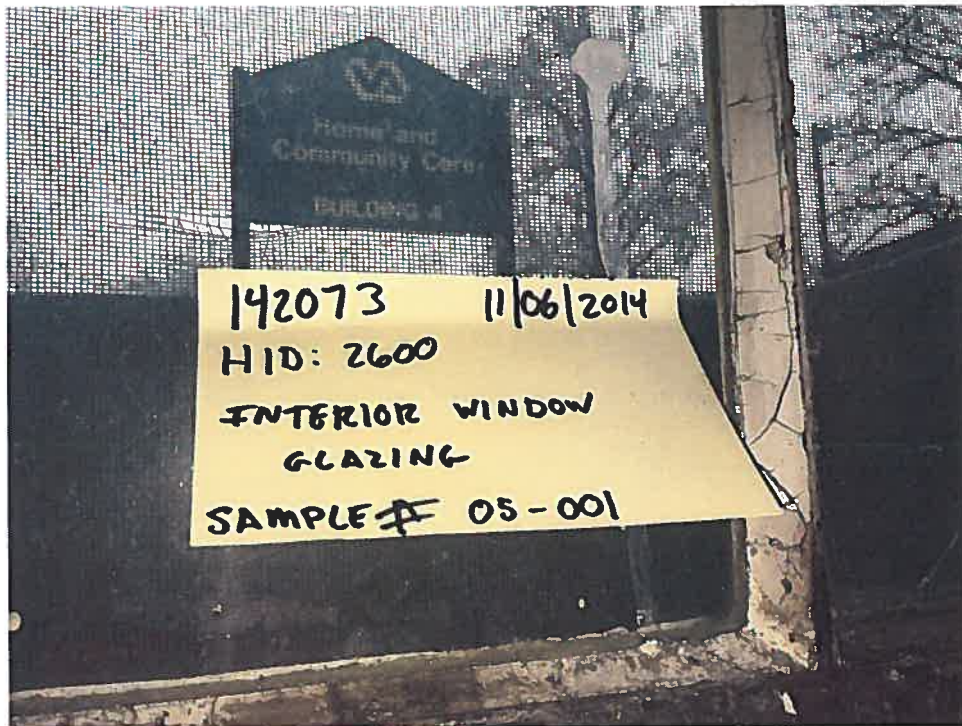 VA
Home and
Community Care
BUILDING 4
142073 11/06/2014
HID: 2600
INTERIOR WINDOW
GLAZING
SAMPLE# 05-001